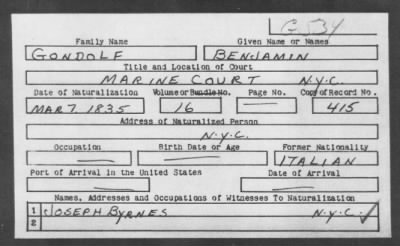 G534
Family Name Given Name or Names
GONDOLF BENJAMIN
Title and Location of Court
MARINE COURT N.Y.C.
Date of Naturalization Volume or Bundle No. Page No. Copy of Record No.
MAR 7. 1835 16 — 415
Address of Naturalized Person
N.Y.C.
Occupation Birth Date or Age Former Nationality
— — ITALIAN
Port of Arrival in the United States Date of Arrival
— —
Names, Addresses and Occupations of Witnesses To Naturalization
1 JOSEPH BYRNES N.Y.C. ✓
2